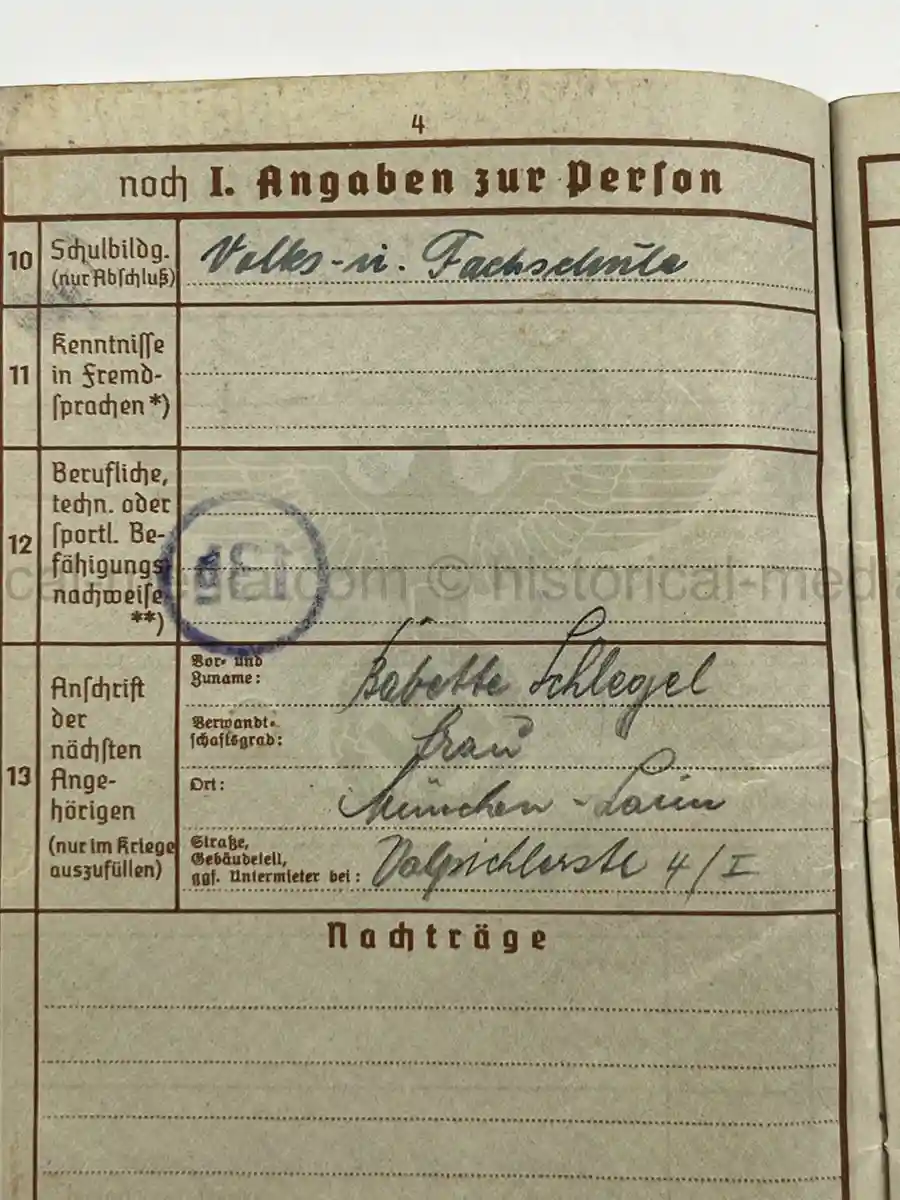 4
noch I. Angaben zur Person
10 Schulbildg. (nur Abschluß) Volks- u. Fachschule
11 Kenntnisse in Fremd-
sprachen *)
12 Berufliche,
techn. oder
sportl. Be-
fähigungs
nachweise
**)
13 Anschrift
der
nächsten
Ange-
hörigen
(nur im Kriege
auszufüllen)
Vor- und
Zuname: Babette Schlegel
Verwandt-
schaftsgrad: Frau
Ort: München - Laim
Straße,
Gebäudeteil,
ggf. Untermieter bei: Valpichlerstr 4/I
Nachträge
© historical-med